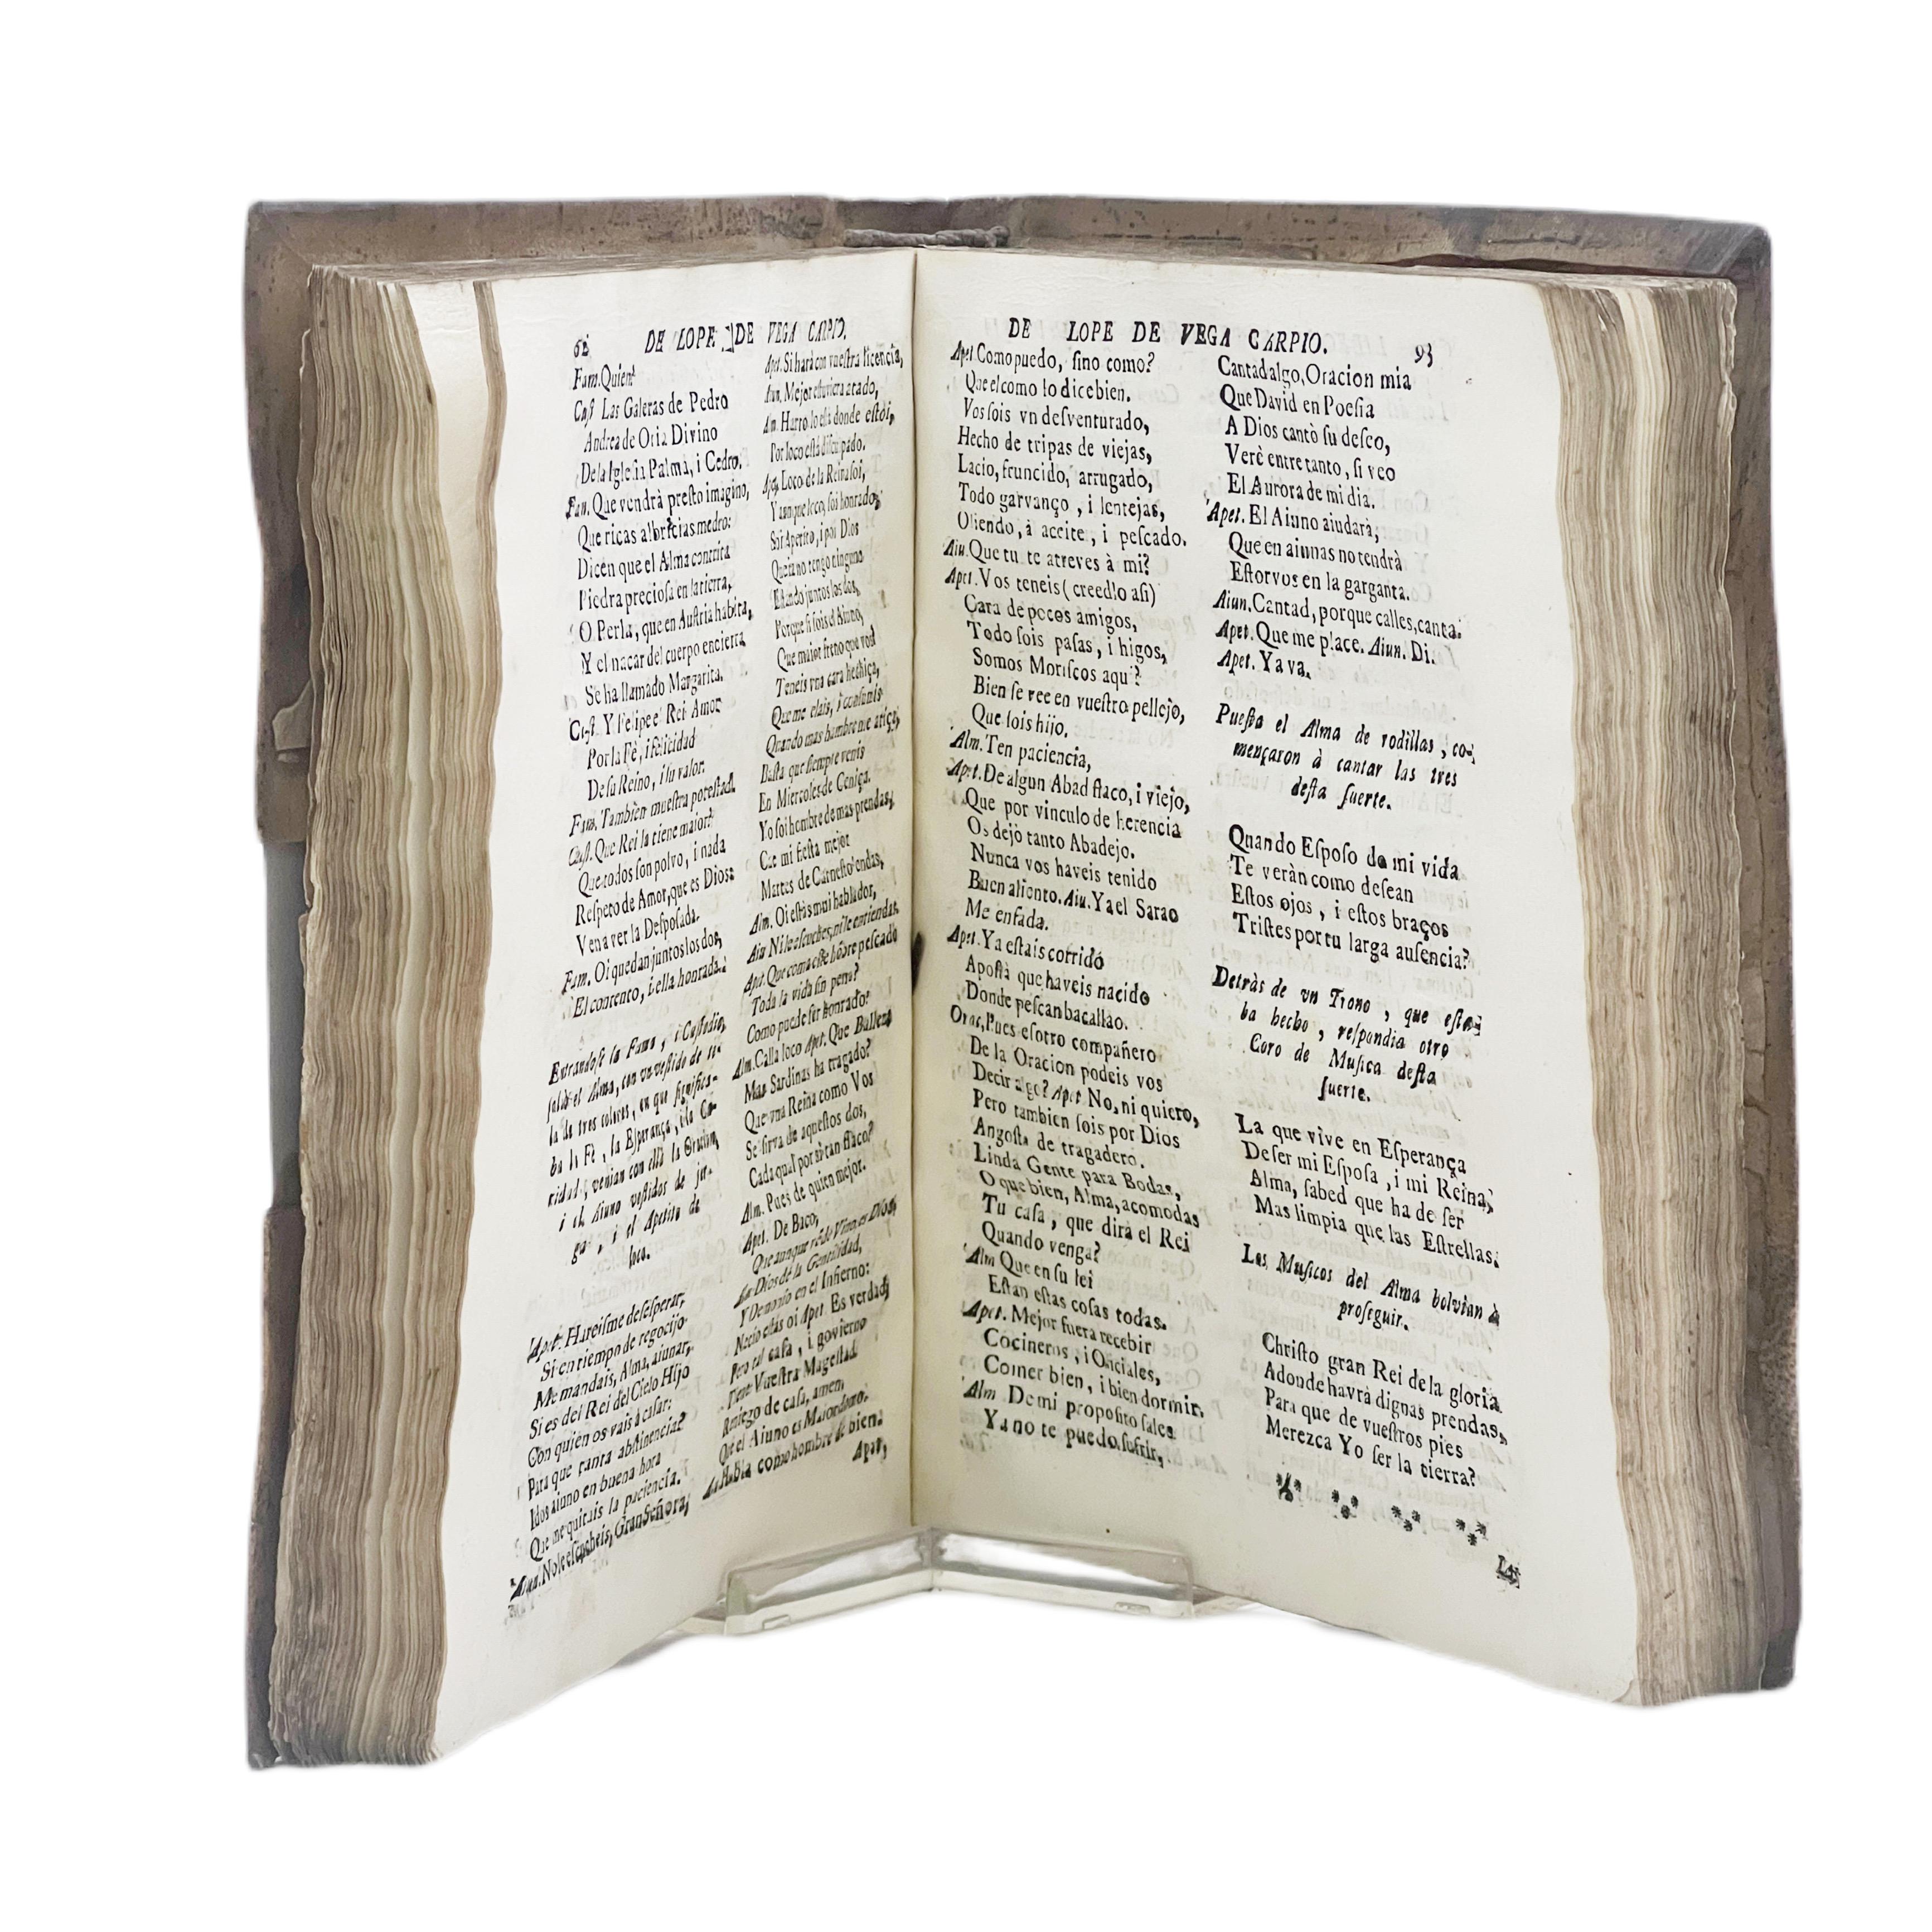 DE LOPE DE VEGA CARPIO.
Fam. Quien?
Cust. Las Galeras de Pedro
Andrea de Oria Divino
De la Iglesia Palma, i Cedro.
Fam. Que vendrà presto imagino,
Que ricas albricias medro:
Dicen que el Alma contrita
Piedra preciosa en la tierra,
O Perla, que en Austria habita,
Y el nacar del cuerpo encierra
Se ha llamado Margarita.
Cust. Y Felipe el Rei Amor
Por la Fè, i felicidad
De su Reino, i su valor.
Fam. Tambien muestra potestad.
Cust. Que Rei la tiene maior?
Que todos son polvo, i nada
Respeto de Amor, que es Dios:
Ven a ver la Desposada.
Fam. Oi quedan juntos los dos,
El contento, i ella honrada.
Entrandose la Fama, i Custodio,
saliò el Alma, con un vestido de te-
la de tres colores, en que significa-
ba la Fè, la Esperança, i la Ca-
ridad; venian con ella la Oracion,
i el Aiuno vestidos de jor-
ga, i el Apetito de
loco.
Apet. Hareisme desesperar;
Si en tiempo de regocijo
Me mandais, Alma, aiunar,
Si es del Rei del Cielo Hijo
Con quien os vais à casar:
Para que tanta abstinencia?
Idos aiuno en buena hora
Que me quitais la paciencia.
Aiun. No le escucheis, Gran Señora;
Apet. Si harà con vuestra licencia,
Aiun. Mejor estuviera atado,
Am. Harto lo està donde estoi,
Por loco està disculpado.
Apet. Loco de la Reina soi,
Y aunque loco, soi honrado;
Soi Apetito, i por Dios
Que ia no tengo ninguno
Estando juntos los dos,
Porque si sois el Aiuno,
Que maior freno que vos?
Teneis una cara hechiça,
Que me elais, i consumis
Quando mas hambre me atiça,
Basta que siempre venis
En Miercoles de Ceniça.
Yo soi hombre de mas prendas,
Cae mi fiesta mejor
Martes de Carnestoliendas,
Alm. Oi estàs mui hablador,
Aiu. Ni le escuches, ni le entiendas.
Apet. Que coma este hõbre pescado
Toda la vida sin pena?
Como puede ser honrado?
Alm. Calla loco Apet. Que Ballena
Mas Sardinas ha tragado?
Que una Reina como Vos
Se sirva de aquestos dos,
Cada qual por sì tan flaco?
Alm. Pues de quien mejor.
Apet. De Baco,
Que aunque es de Vino, es Dios,
Dios de la Gentilidad,
Y Demonio en el Infierno:
Necio estàs oi Apet. Es verdad,
Pero tal casa, i govierno
Tiene Vuestra Magestad
Reniego de casa, amen,
Que el Aiuno es Maiordomo.
Habla como hombre de bien.
Apet,
DE LOPE DE VEGA CARPIO. 93
Apet. Como puedo, sino como?
Que el como lo dice bien.
Vos sois vn desventurado,
Hecho de tripas de viejas,
Lacio, fruncido, arrugado,
Todo garvanço, i lentejas,
Oliendo, à aceite, i pescado.
Aiu. Que tu te atreves à mi?
Apet. Vos teneis (creedlo asi)
Cara de pocos amigos,
Todo sois pasas, i higos,
Somos Moriscos aqui?
Bien se vee en vuestro pellejo,
Que sois hijo.
Alm. Ten paciencia,
Apet. De algun Abad flaco, i viejo,
Que por vinculo de herencia
Os dejò tanto Abadejo.
Nunca vos haveis tenido
Buen aliento. Aiu. Ya el Sarao
Me enfada.
Apet. Ya estais corrido
Apostà que haveis nacido
Donde pescan bacallao.
Orac. Pues esotro compañero
De la Oracion podeis vos
Decir algo? Apet. No, ni quiero,
Pero tambien sois por Dios
Angosta de tragadero.
Linda Gente para Bodas,
O que bien, Alma, acomodas
Tu casa, que dirà el Rei
Quando venga?
Alm Que en su lei
Estan estas cosas todas.
Apet. Mejor fuera recebir
Cocineros, i Oficiales,
Comer bien, i bien dormir.
Alm. De mi proposito sales
Ya no te puedo sufrir,
Cantad algo, Oracion mia
Que David en Poesia
A Dios cantò su deseo,
Verè entre tanto, si veo
El Aurora de mi dia.
Apet. El Aiuno aiudarà;
Que en aiunas no tendrà
Estorvos en la garganta.
Aiun. Cantad, porque calles, canta.
Apet. Que me place. Aiun. Di.
Apet. Ya va.
Puesta el Alma de rodillas, co-
mençaron à cantar las tres
desta suerte.
Quando Esposo de mi vida
Te veràn como desean
Estos ojos, i estos braços
Tristes por tu larga ausencia?
Detràs de vn Trono, que esta-
ba hecho, respondia otro
Coro de Musica desta
suerte.
La que vive en Esperança
De ser mi Esposa, i mi Reina,
Alma, sabed que ha de ser
Mas limpia que las Estrellas.
Los Musicos del Alma bolvian à
proseguir.
Christo gran Rei de la gloria
Adonde havrà dignas prendas,
Para que de vuestros pies
Merezca Yo ser la tierra?